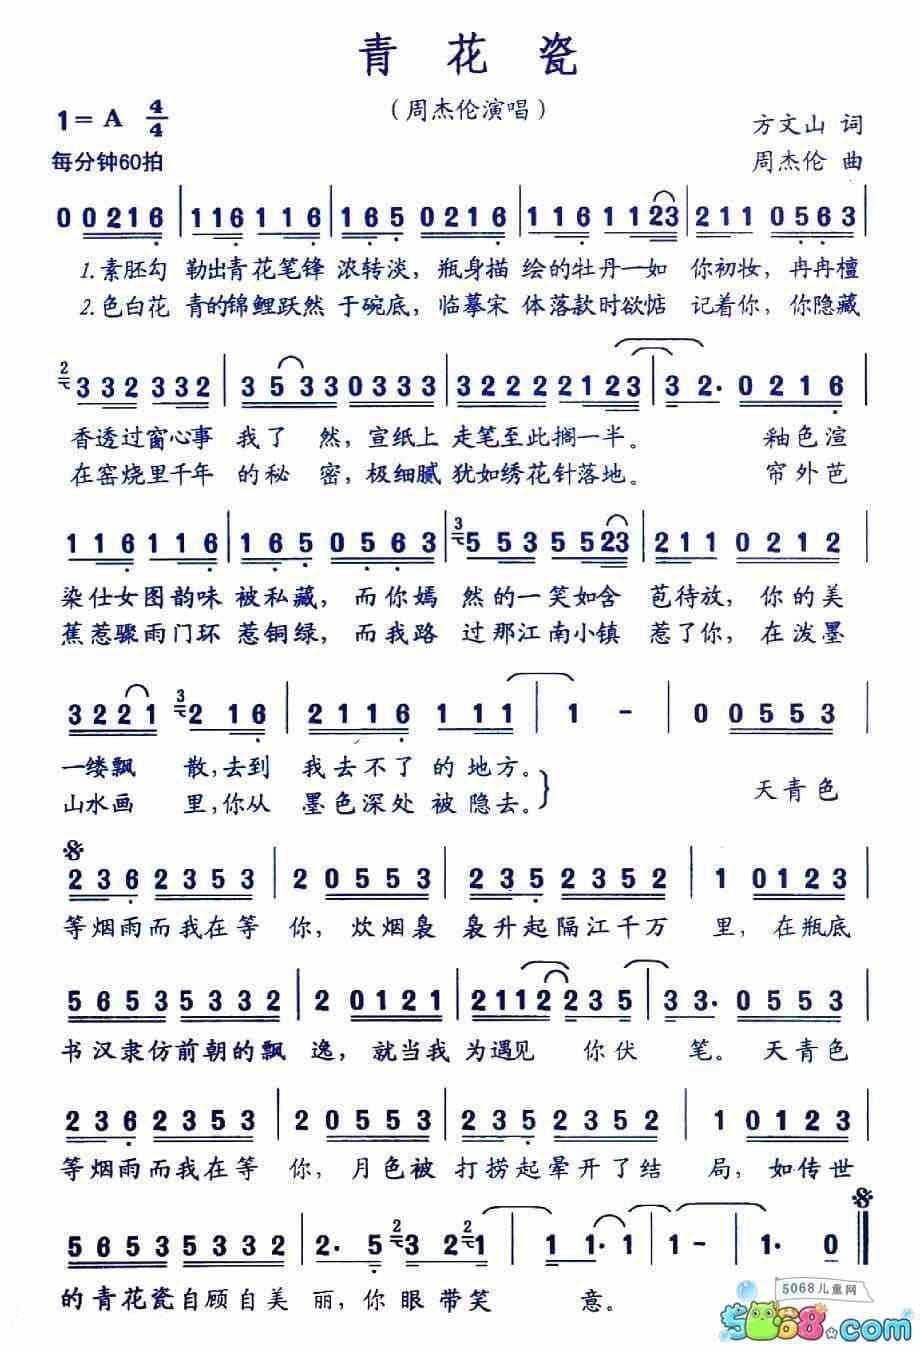 青花瓷
（周杰伦演唱）
1=A 4/4
方文山 词
每分钟60拍
周杰伦 曲
0 0216 | 116 116 | 165 0216 | 116 1123 | 211 0563
1.素胚勾 勒出青花笔锋 浓转淡，瓶身描 绘的牡丹一如 你初妆，冉冉檀
2.色白花 青的锦鲤跃然 于碗底，临摹宋 体落款时欲惦 记着你，你隐藏
2 332 332 | 3533 0333 | 3222 2123 | 32· 0216
香透过窗心事 我了 然，宣纸上 走笔至此搁一半。 釉色渲
在窑烧里千年 的秘 密，极细腻 犹如绣花针落地。 帘外芭
116 116 | 165 0563 | 3 553 5523 | 211 0212
染仕女图韵味 被私藏，而你嫣 然的一笑如含 苞待放，你的美
蕉惹骤雨门环 惹铜绿，而我路 过那江南小镇 惹了你，在泼墨
3221 3 2 16 | 2116 111 | 1 - | 0 0553
一缕飘 散，去到 我去不了 的地方。
山水画 里，你从 墨色深处 被隐去。
天青色
236 2353 | 2 0553 | 235 2352 | 1 0123
等烟雨而我在等 你，炊烟袅 袅升起隔江千万 里，在瓶底
5653 5332 | 2 0121 | 2112 235 | 33· 0553
书汉隶仿前朝的飘 逸，就当我 为遇见 你伏 笔。天青色
236 2353 | 2 0553 | 235 2352 | 1 0123
等烟雨而我在等 你，月色被 打捞起晕开了结 局，如传世
5653 5332 | 2· 5 2 3 2 2 1 | 1 1· 1 | 1 - | 1· 0
的青花瓷自顾自美 丽，你 眼带笑 意。
5068儿童网
5068.com